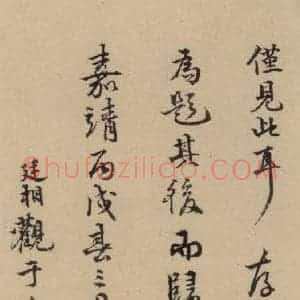 僅見此耳 存
為題其後而歸
嘉靖丙戌春三月
廷相觀于
shufaziliao.com